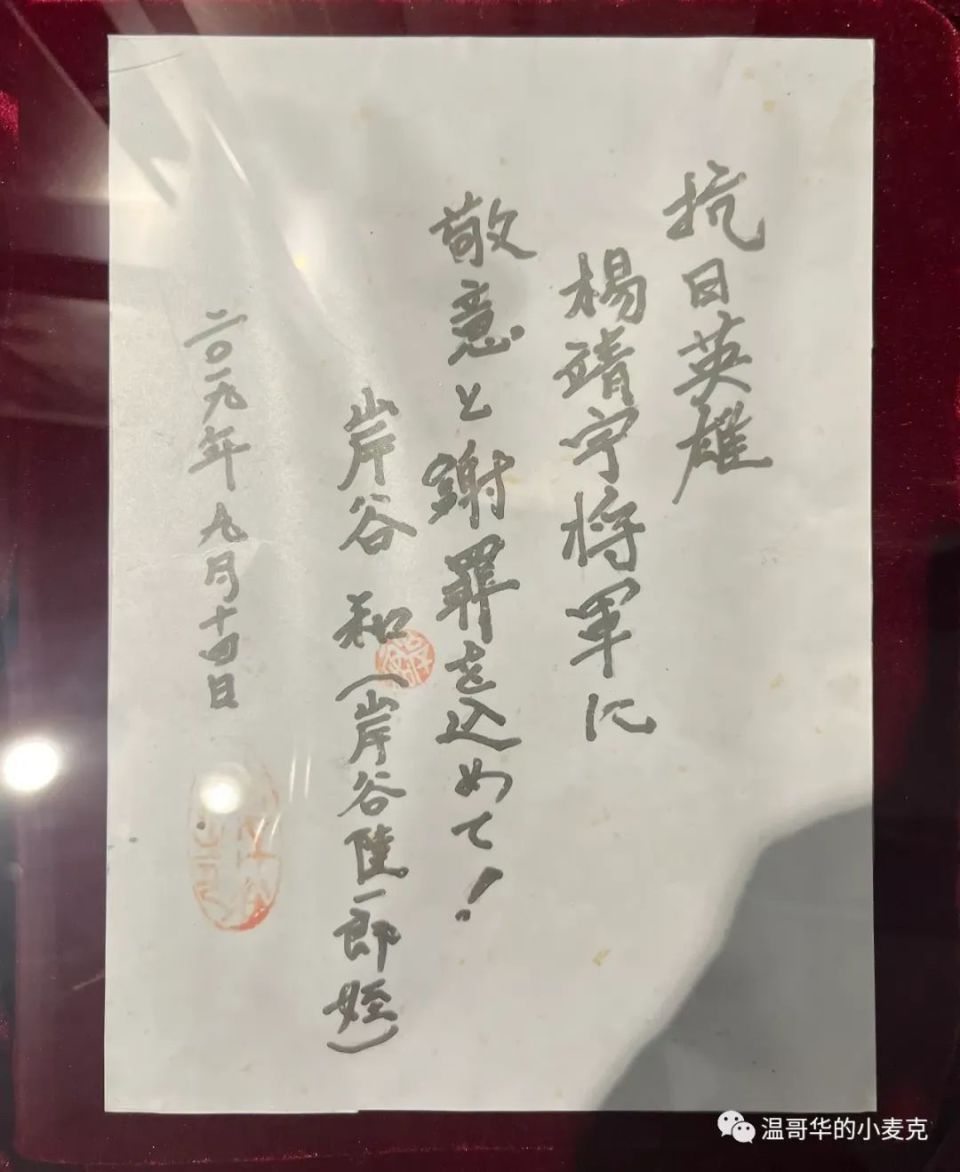 抗日英雄
楊靖宇将軍に
敬意と謝罪を込めて！
岸谷 和（岸谷隆一郎姪）
二〇一九年九月十四日
温哥华的小麦克